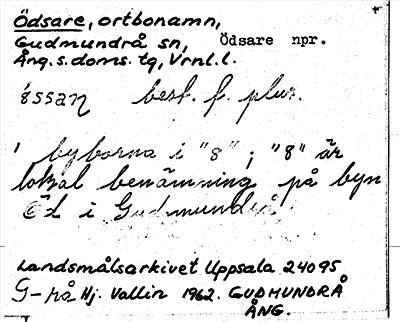 Ödsare, ortbonamn,
Gudmundrå sn, Ödsare npr.
Ång. s. doms. tg, Vrnl. l.
best. f. plur.
byborna i "8"; "8" är
lokal benämning på byn
Öd i Gudmundrå
Landsmålsarkivet Uppsala 24095
G-rå Hj. Vallin 1962. GUDMUNDRÅ
ÅNG.